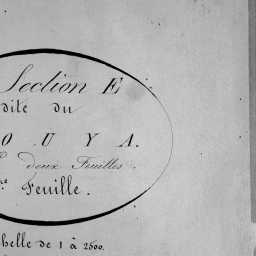 Section E
dite du
O U Y A.
deux Feuilles.
Feuille.
helle de 1 à 2500.